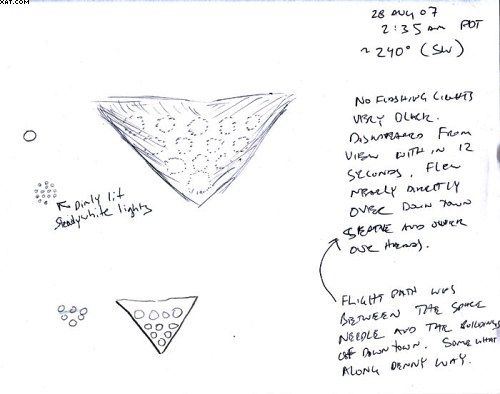 XAT.COM
28 AUG 07
2:35 am PDT
~ 240° (SW)
NO FLASHING LIGHTS
VERY QUICK.
DISAPPEARED FROM
VIEW WITH IN 12
SECONDS. FLEW
NEARLY DIRECTLY
OVER DOWN TOWN
SEATTLE AND OVER
OUR HEADS.
dimly lit
steady white lights
FLIGHT PATH WAS
BETWEEN THE SPACE
NEEDLE AND THE BUILDINGS
OF DOWNTOWN. SOMEWHAT
ALONG DENNY WAY.